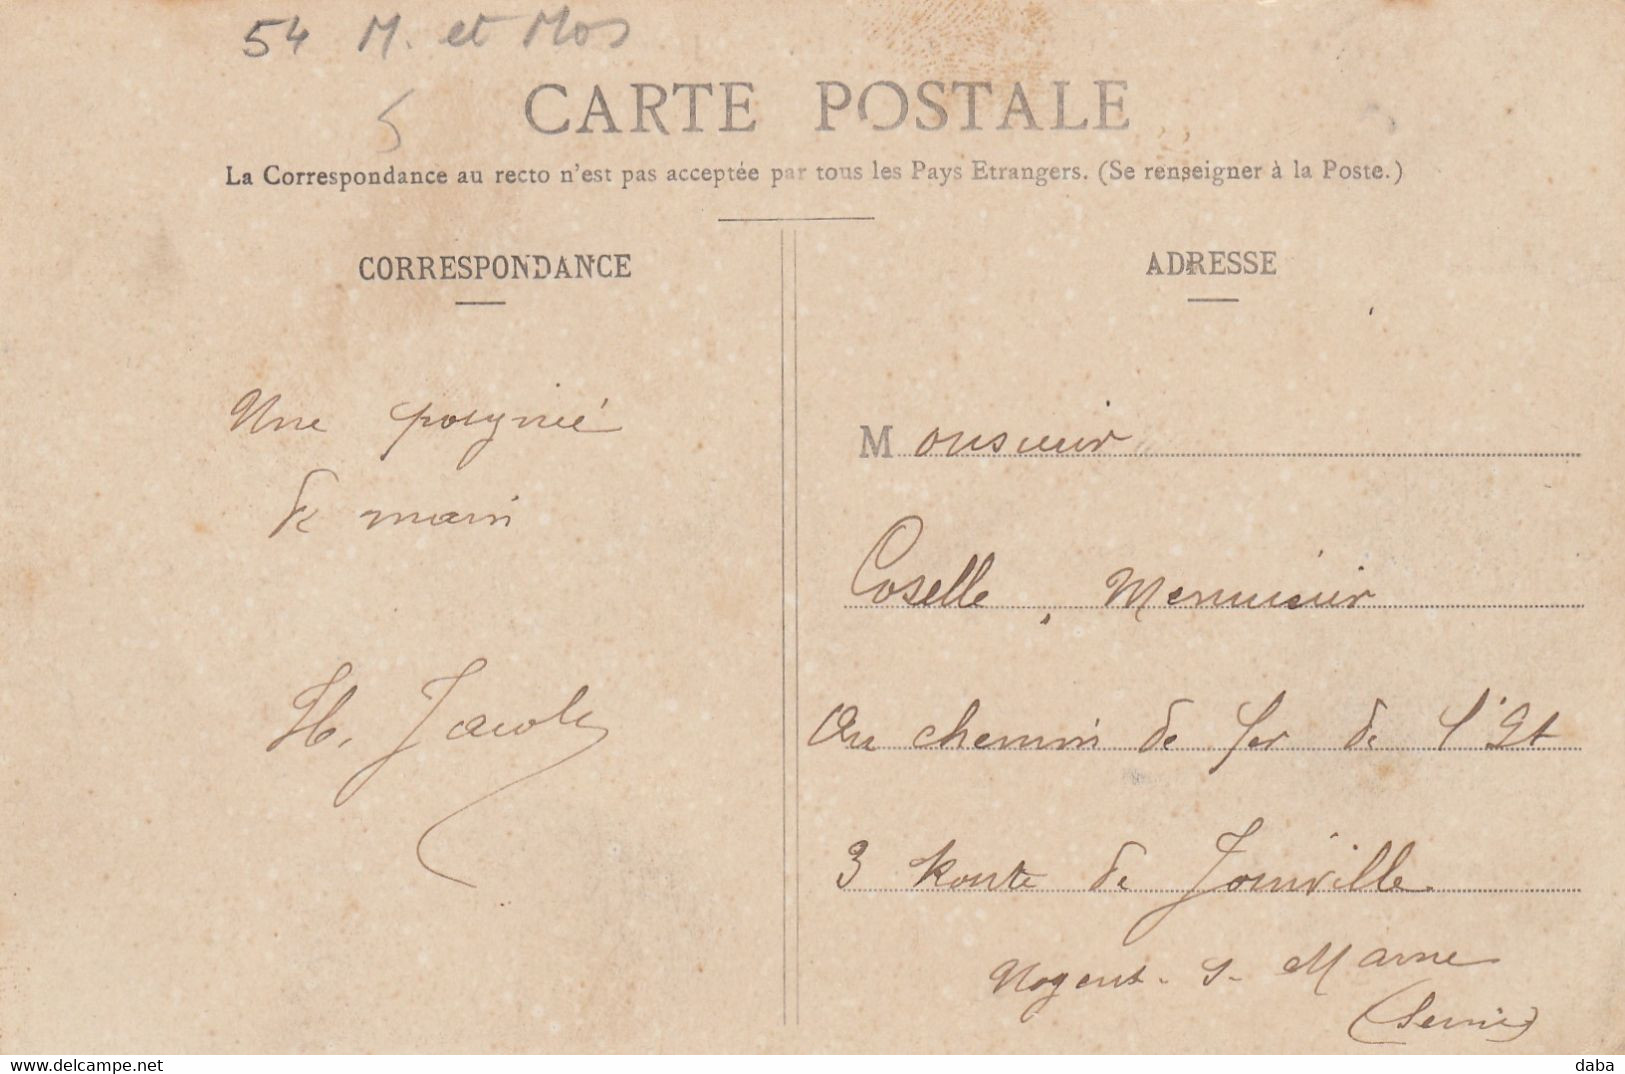 54 M. et Mos
5
CARTE POSTALE
La Correspondance au recto n'est pas acceptée par tous les Pays Etrangers. (Se renseigner à la Poste.)
CORRESPONDANCE
Une poignié
de main
H. Jacob
ADRESSE
Monsieur
Coselle, Menuisier
Au chemin de fer de l'Est
3 Route de Joinville
Nogent-s-Marne
(Seine)
delcampe.net
daba